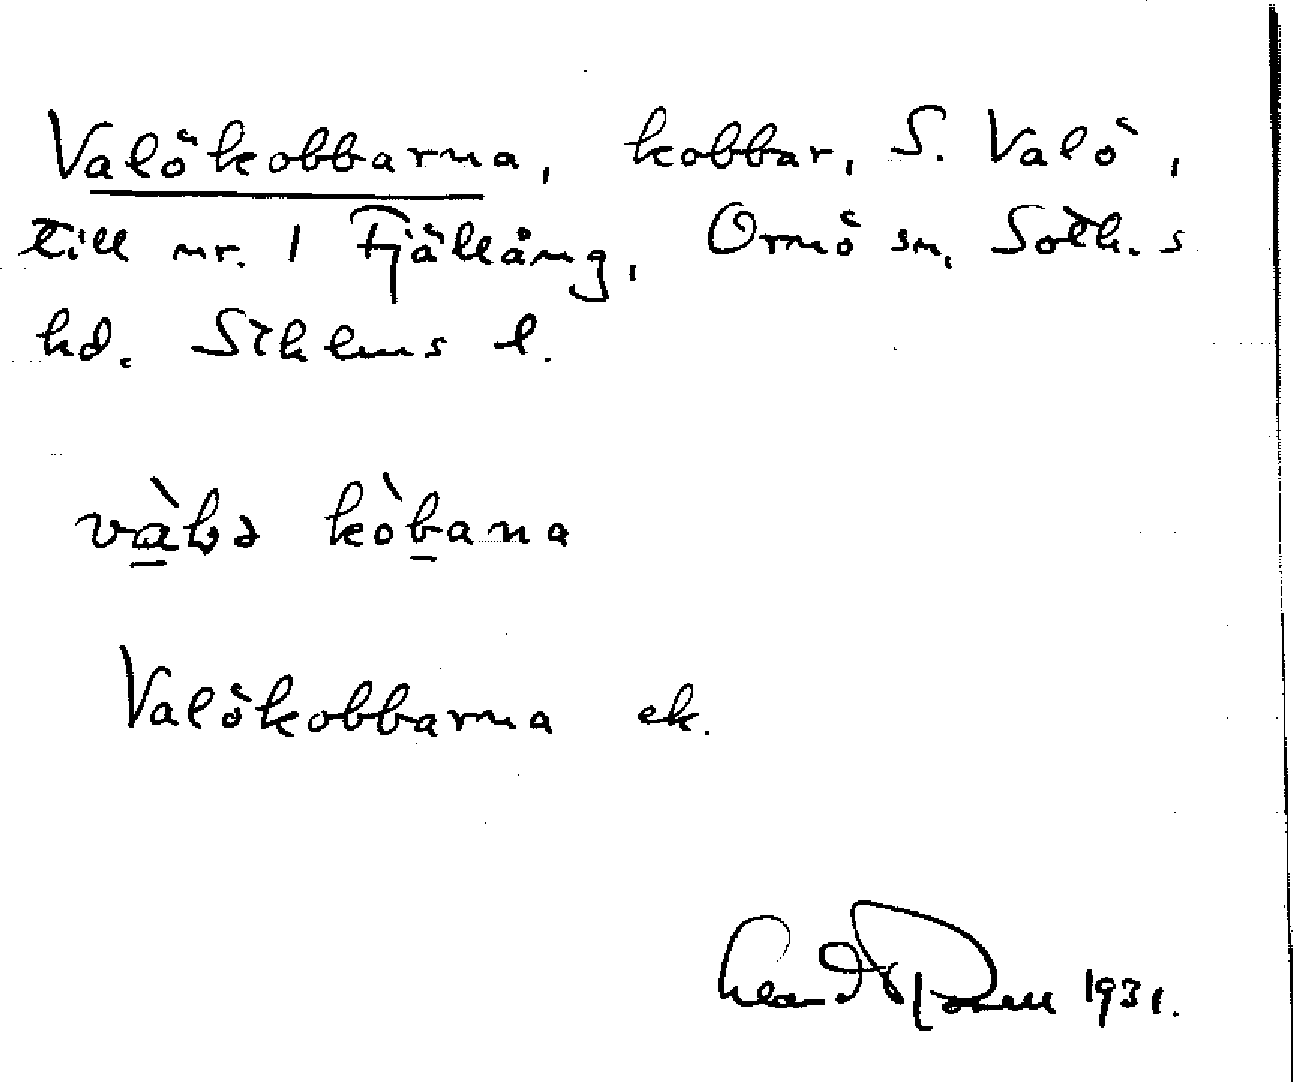 Valökobbarna, kobbar, S. Valö,
till nr. 1 Fjällång, Ornö sn, Soth.s
hd. Sthlms l.
kòbana
Valökobbarna ek.
1931.